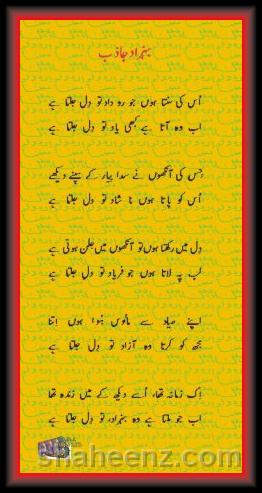 بہزاد جاذب
اُس کی سنتا ہوں جو روداد تو دِل جلتا ہے
اب وہ آتا ہے کبھی یاد تو دِل جلتا ہے
جس کی آنکھوں نے سدا پیار کے سپنے دیکھے
اُس کو پاتا ہوں نا شاد تو دِل جلتا ہے
دِل میں رکھتا ہوں تو آنکھوں میں جلن ہوتی ہے
لب پہ لاتا ہوں جو فریاد تو دِل جلتا ہے
اپنے صیاد سے مانُوس ہُوا ہوں اِتنا
مجھ کو کرتا وہ آزاد تو دِل جلتا ہے
اِک زمانہ تھا، اُسے دیکھ کے میں زندہ تھا
اب جو ملتا ہے وہ بہزاد، تو دِل جلتا ہے
shaheenz.com